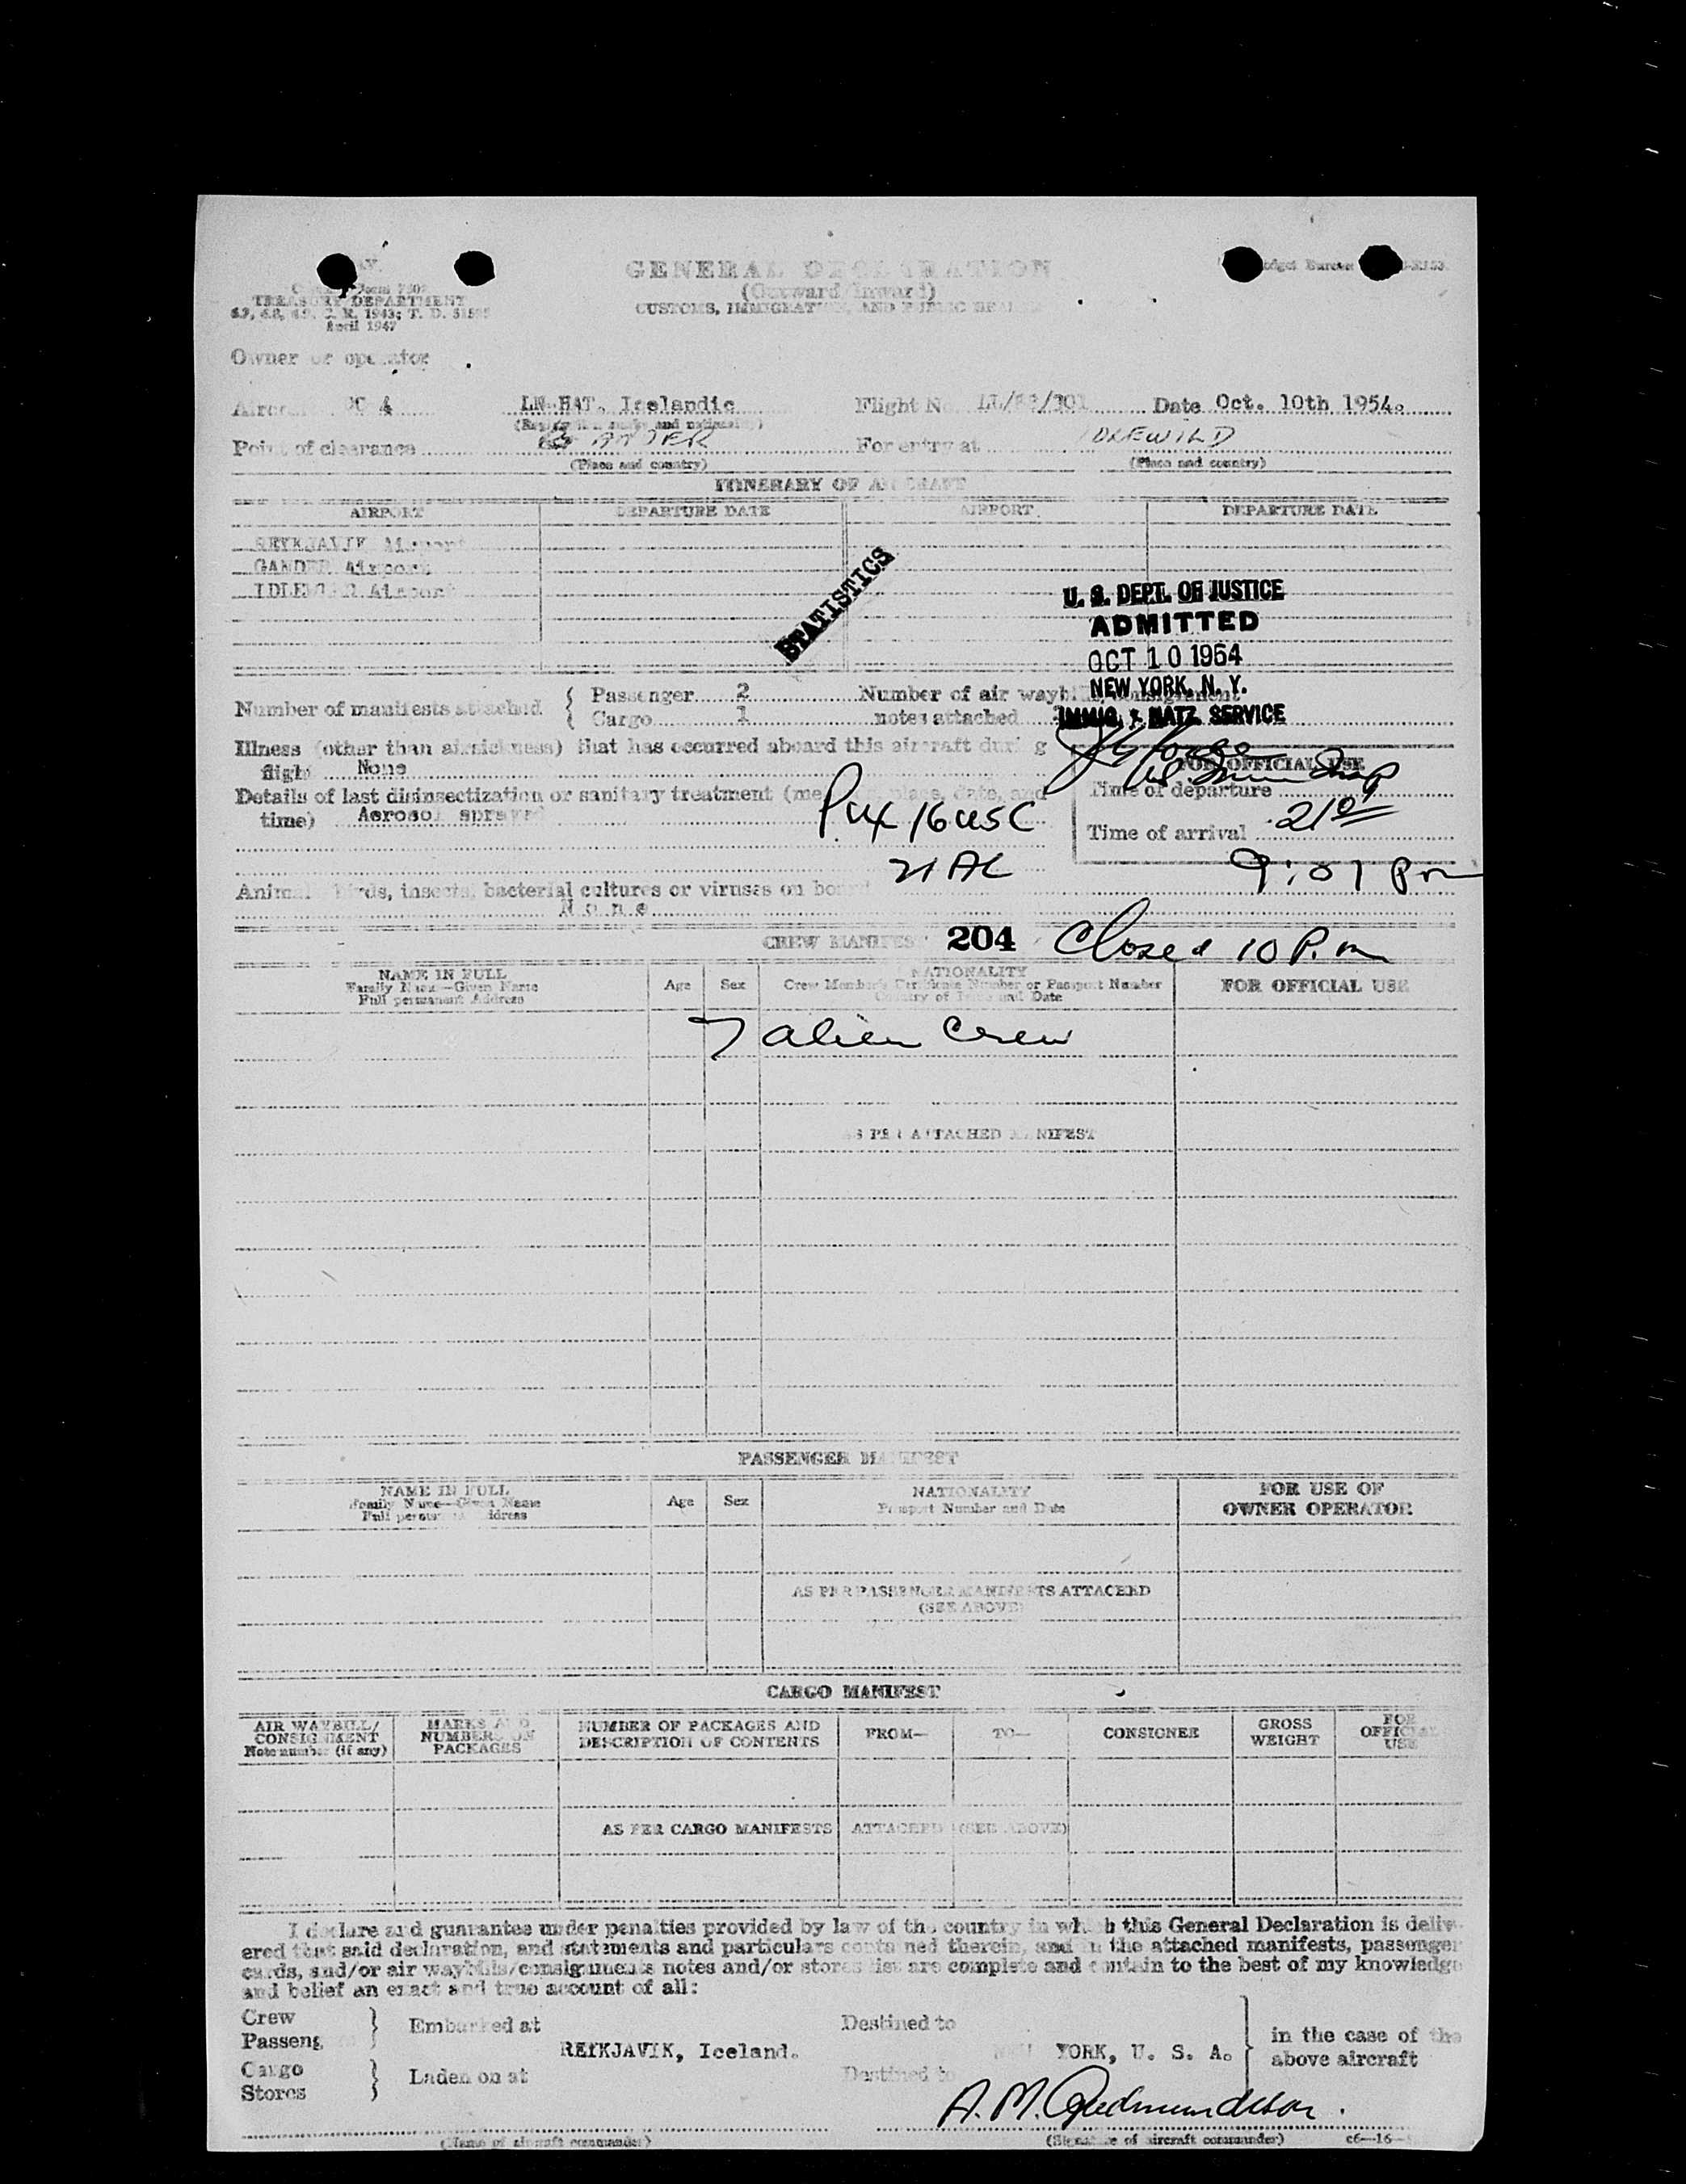 GENERAL DECLARATION
(Outward/Inward)
CUSTOMS, IMMIGRATION, AND PUBLIC
TREASURY DEPARTMENT
April 1947
Owner or operator
Aircraft LN-HAT. Icelandic Flight No. Date Oct. 10th 1954.
Point of clearance GANDER For entry at IDLEWILD
(Place and country) (Place and country)
ITINERARY OF AIRCRAFT
AIRPORT DEPARTURE DATE AIRPORT DEPARTURE DATE
REYKJAVIK Airport
GANDER Airport
IDLEWILD Airport
STATISTICS
U. S. DEPT. OF JUSTICE
ADMITTED
OCT 10 1954
NEW YORK, N. Y.
IMMIG. & NATZ. SERVICE
Number of manifests attached { Passenger 2 Number of air waybills/consignment
Cargo 1 notes attached
Illness (other than airsickness) that has occurred aboard this aircraft during
flight None
FOR OFFICIAL USE
Details of last disinsectization or sanitary treatment (method, place, date, and
time) Aerosol sprayed
Time of departure
Time of arrival 2107
Pax 16 USC
21 AL
9:07 Pm
Animals, birds, insects, bacterial cultures or viruses on board
None
CREW MANIFEST 204 Closed 10 P.m
NAME IN FULL
Family Name—Given Name
Full permanent Address
Age Sex
NATIONALITY
Crew Member's Certificate Number or Passport Number
Country of Issue and Date
FOR OFFICIAL USE
7 alien Crew
AS PER ATTACHED MANIFEST
PASSENGER MANIFEST
NAME IN FULL
Family Name—Given Name
Full permanent Address
Age Sex
NATIONALITY
Passport Number and Date
FOR USE OF
OWNER OPERATOR
AS PER PASSENGER MANIFESTS ATTACHED
(SEE ABOVE)
CARGO MANIFEST
AIR WAYBILL/
CONSIGNMENT
Note number (if any)
MARKS AND
NUMBERS ON
PACKAGES
NUMBER OF PACKAGES AND
DESCRIPTION OF CONTENTS
FROM— TO— CONSIGNEE
GROSS
WEIGHT
FOR
OFFICIAL
USE
AS PER CARGO MANIFESTS ATTACHED (SEE ABOVE)
I declare and guarantee under penalties provided by law of the country in which this General Declaration is deliv-
ered that said declaration, and statements and particulars contained therein, and in the attached manifests, passenger
cards, and/or air waybills/consignments notes and/or stores list are complete and contain to the best of my knowledge
and belief an exact and true account of all:
Crew
Passengers } Embarked at Destined to
REYKJAVIK, Iceland. NEW YORK, U. S. A.
in the case of the
above aircraft
Cargo
Stores } Laden on at Destined to
A. M. Gudmundsson.
(Name of aircraft commander) (Signature of aircraft commander)